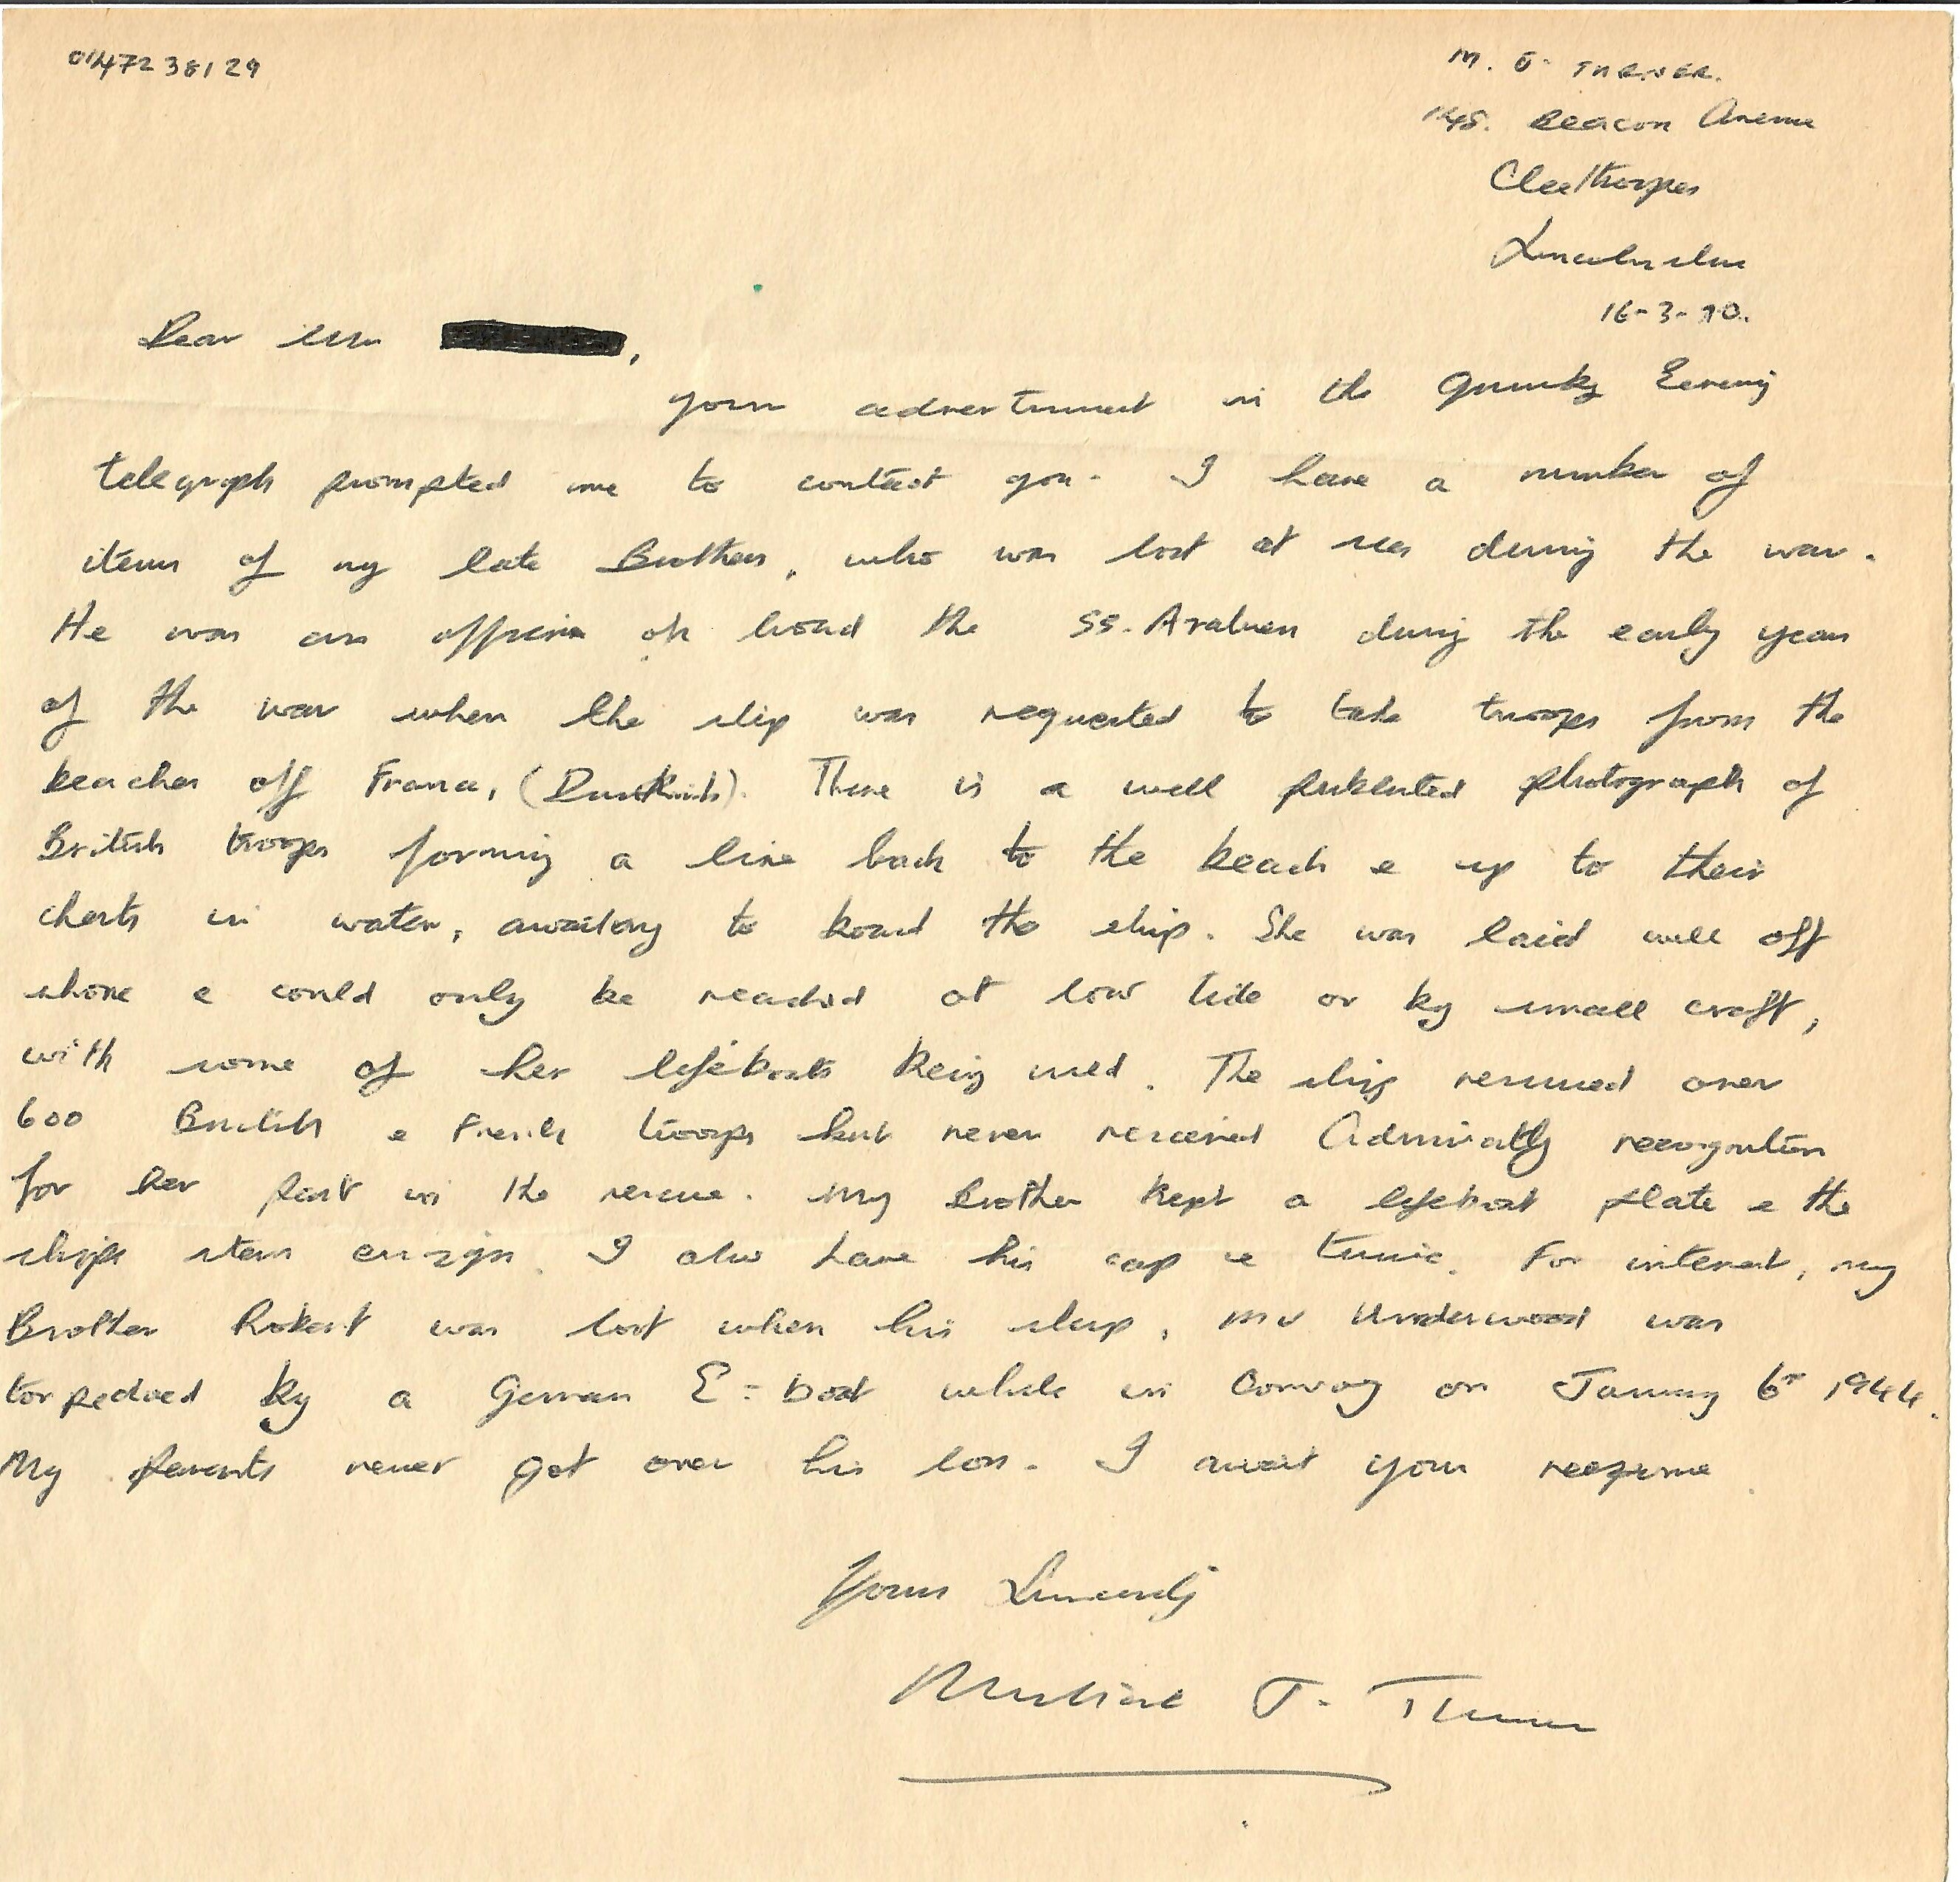 0147238129
M. J. TURNER.
145. Beacon Avenue
Cleethorpes
Lincolnshire
16-3-90.
Dear Mr ,
your advertisment in the Grimsby Evening
telegraph prompted me to contact you. I have a number of
items of my late Brothers, who was lost at sea during the war.
He was an officer on board the SS. Arabien during the early years
of the war when the ship was requested to take troops from the
beaches off France, (Dunkirk). There is a well published photograph of
British troops forming a line back to the beach & up to their
chests in water, awaiting to board the ship. She was laid well off
shore & could only be reached at low tide or by small craft,
with some of her lifeboats being used. The ship rescued over
600 British & French troops but never received Admiralty recognition
for her part in the rescue. My Brother kept a lifeboat plate & the
ships stern ensign. I also have his cap & tunic. For interest, my
Brother Robert was lost when his ship, MV Underwood was
torpedoed by a German E-boat while in Convoy on January 6th 1944.
My parents never got over his loss. I await your response
Yours Sincerely
J. Turner